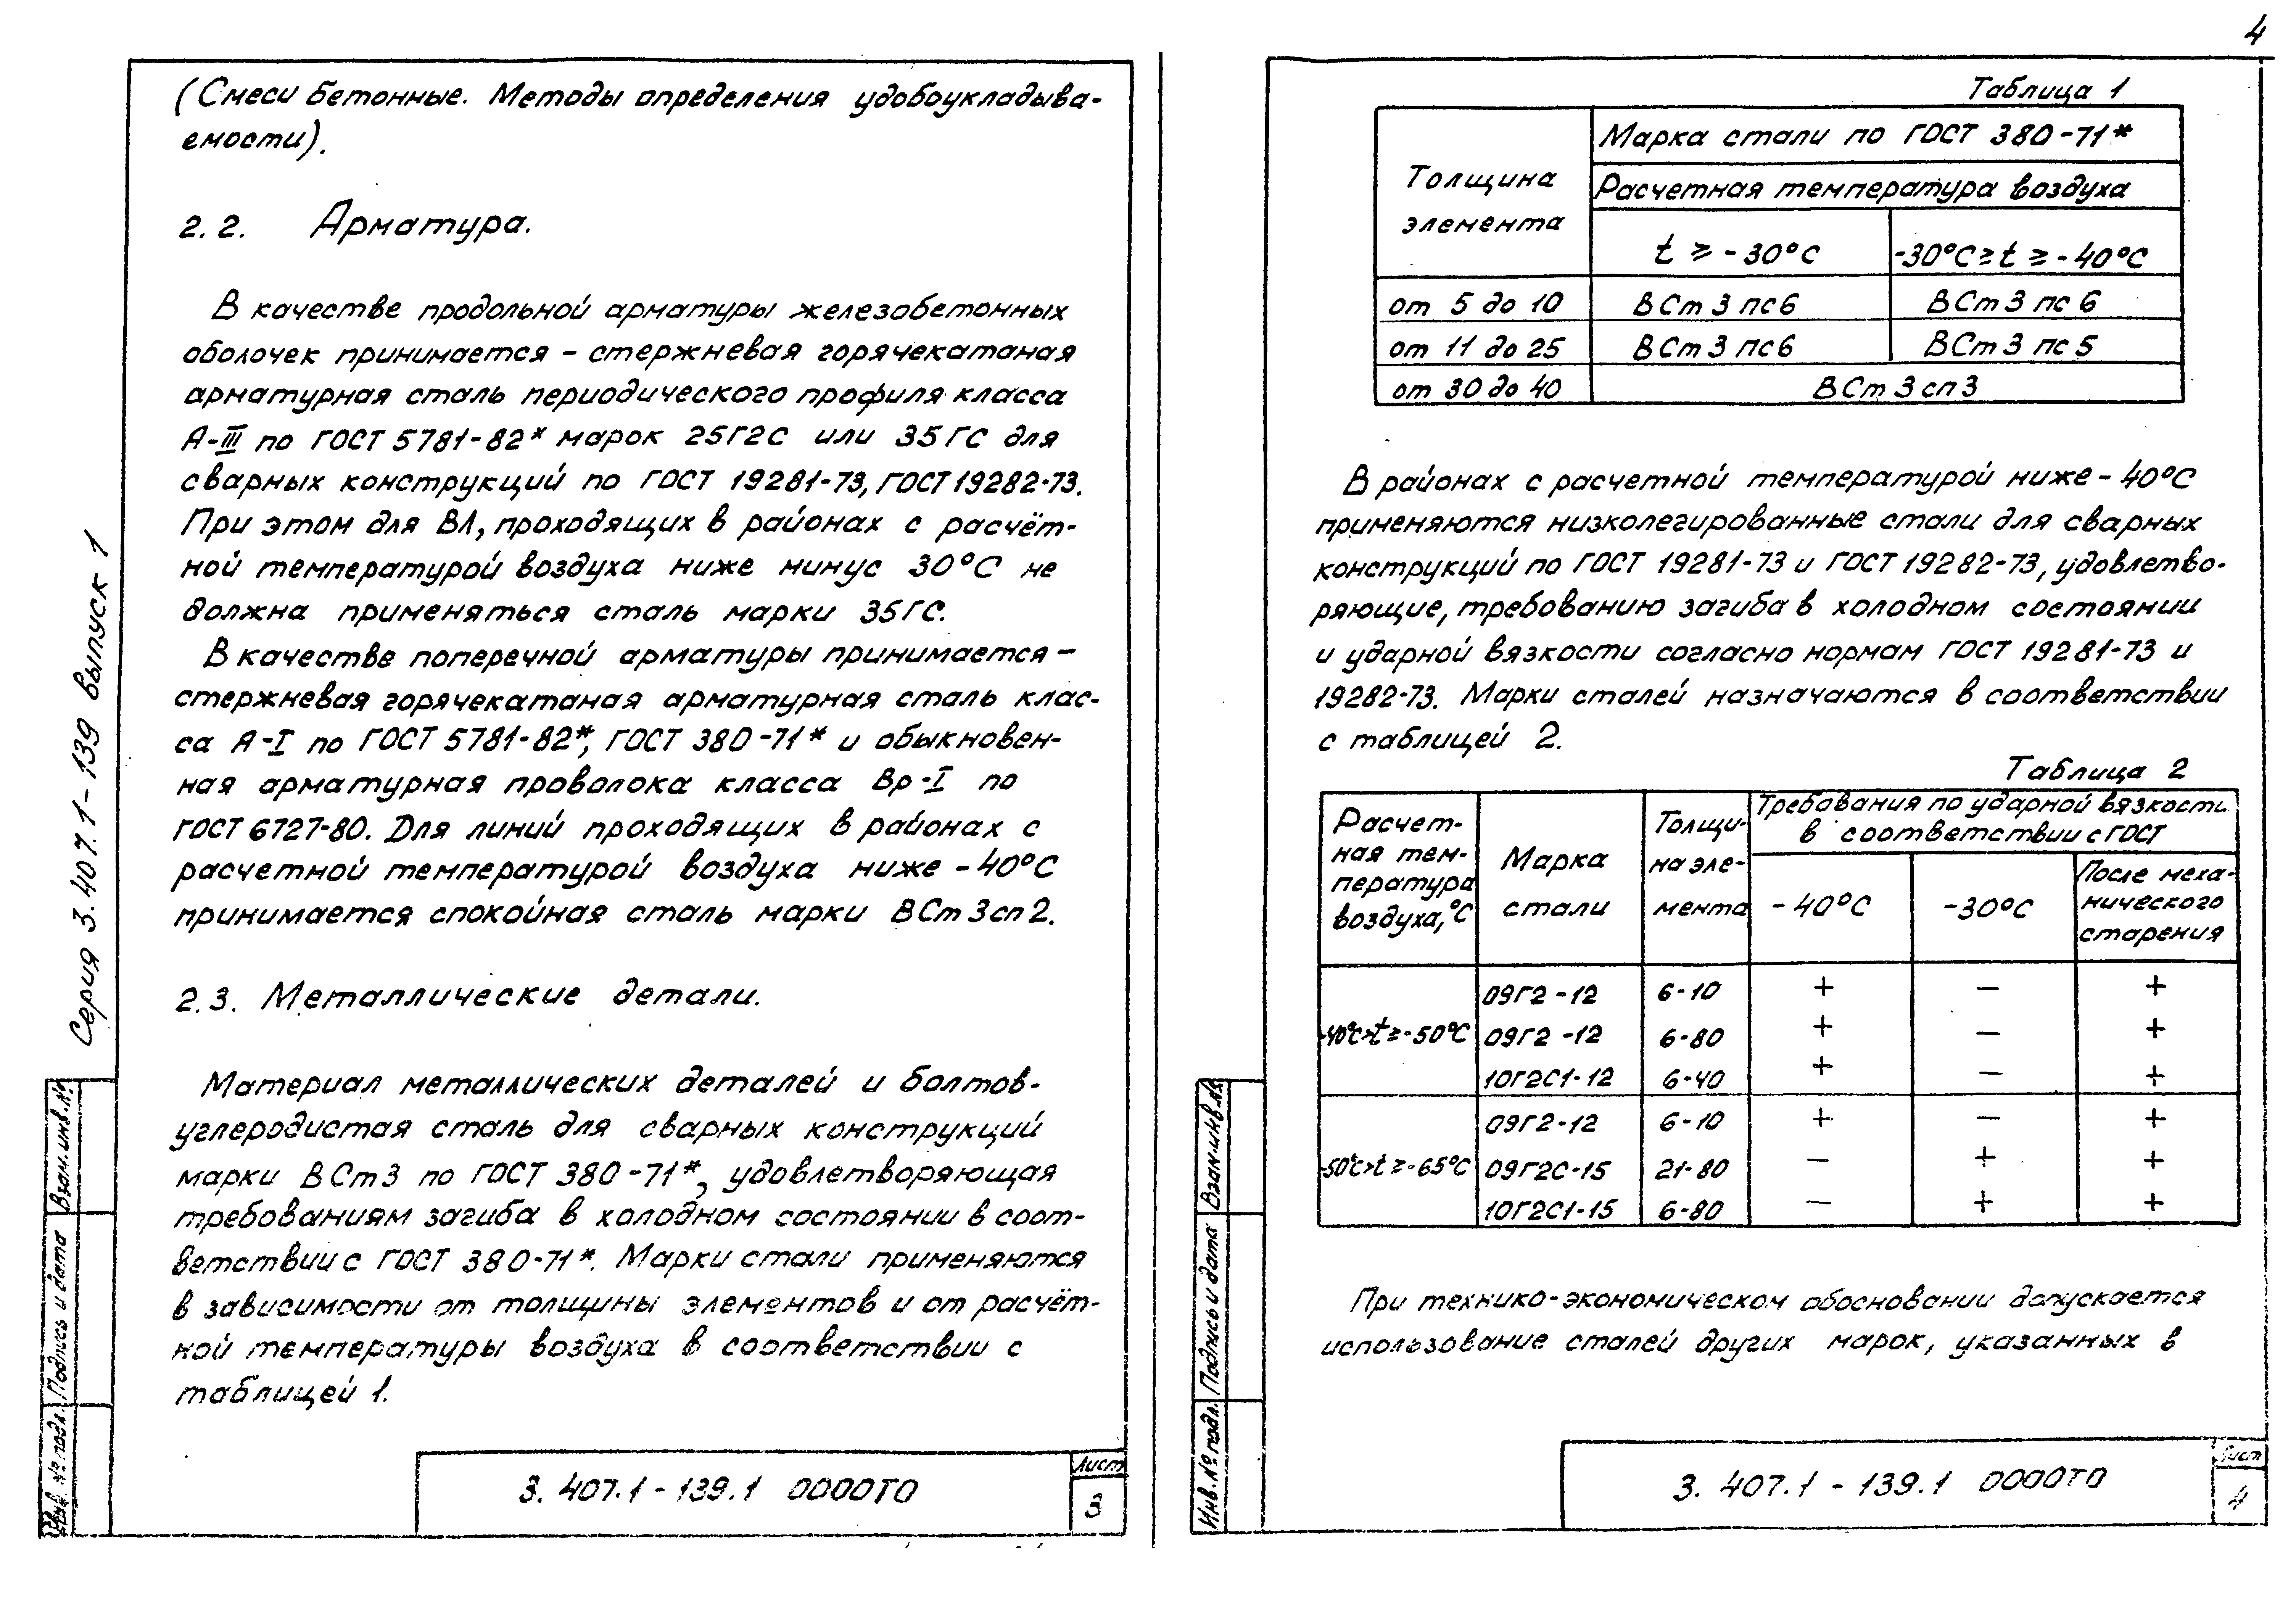 4
(Смеси бетонные. Методы определения удобоукладыва-
емости).
2.2. Арматура.
В качестве продольной арматуры железобетонных
оболочек принимается – стержневая горячекатаная
арматурная сталь периодического профиля класса
А-III по ГОСТ 5781-82* марок 25Г2С или 35ГС для
сварных конструкций по ГОСТ 19281-73, ГОСТ 19282-73.
При этом для ВЛ, проходящих в районах с расчёт-
ной температурой воздуха ниже минус 30°С не
должна применяться сталь марки 35ГС.
В качестве поперечной арматуры принимается –
стержневая горячекатаная арматурная сталь клас-
са А-I по ГОСТ 5781-82*, ГОСТ 380-71* и обыкновен-
ная арматурная проволока класса Вр-I по
ГОСТ 6727-80. Для линий проходящих в районах с
расчетной температурой воздуха ниже -40°С
принимается спокойная сталь марки ВСт3сп2.
2.3. Металлические детали.
Материал металлических деталей и болтов-
углеродистая сталь для сварных конструкций
марки ВСт3 по ГОСТ 380-71*, удовлетворяющая
требованиям загиба в холодном состоянии в соот-
ветствии с ГОСТ 380-71*. Марки стали применяются
в зависимости от толщины элементов и от расчёт-
ной температуры воздуха в соответствии с
таблицей 1.
Серия 3.407.1-139 выпуск 1
Взам. инв. №
Подпись и дата
Инв. № подл.
3. 407.1 - 139.1 0000ТО
Лист
3
Таблица 1
Толщина
элемента
Марка стали по ГОСТ 380-71*
Расчетная температура воздуха
t ≥ -30°С -30°С ≥ t ≥ -40°С
от 5 до 10 ВСт3пс6 ВСт3пс6
от 11 до 25 ВСт3пс6 ВСт3пс5
от 30 до 40 ВСт3сп3
В районах с расчетной температурой ниже -40°С
применяются низколегированные стали для сварных
конструкций по ГОСТ 19281-73 и ГОСТ 19282-73, удовлетво-
ряющие, требованию загиба в холодном состоянии
и ударной вязкости согласно нормам ГОСТ 19281-73 и
19282-73. Марки сталей назначаются в соответствии
с таблицей 2.
Таблица 2
Расчет-
ная тем-
пература
воздуха, °С
Марка
стали
Толщи-
на эле-
мента
Требования по ударной вязкости
в соответствии с ГОСТ
-40°С
-30°С
После меха-
нического
старения
09Г2-12 6-10 + — +
-40°С>t≥-50°С 09Г2-12 6-80 + — +
10Г2С1-12 6-40 + — +
09Г2-12 6-10 + — +
-50°С>t≥-65°С 09Г2С-15 21-80 — + +
10Г2С1-15 6-80 — + +
При технико-экономическом обосновании допускается
использование сталей других марок, указанных в
Взам. инв. №
Подпись и дата
Инв. № подл.
3. 407.1 - 139.1 0000ТО
Лист
4